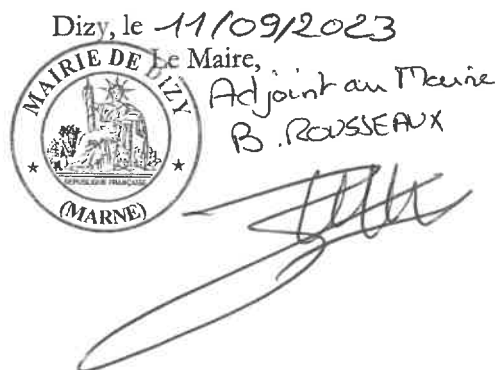 Dizy, le 11/09/2023
Le Maire,
Adjoint au Maire
B. ROUSSEAUX
MAIRIE DE DIZY
RÉPUBLIQUE FRANÇAISE
(MARNE)